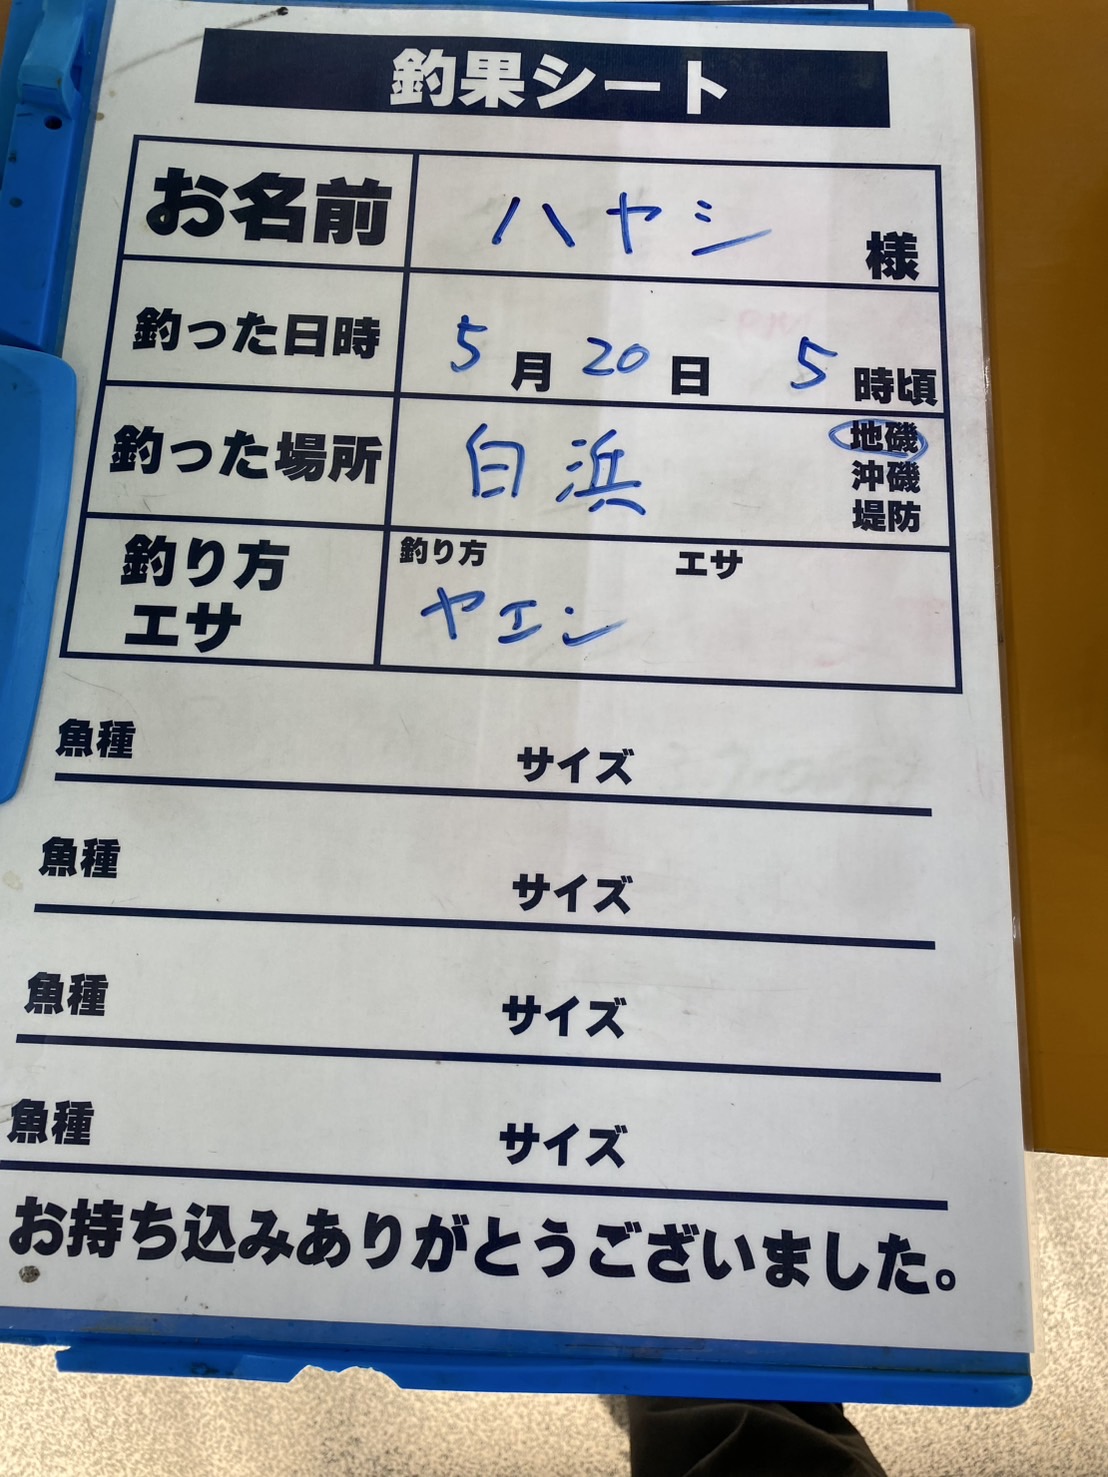 釣果シート
お名前 ハヤシ 様
釣った日時 5月20日 5時頃
釣った場所 白浜 地磯
沖磯
堤防
釣り方 エサ
釣り方 エサ
ヤエン
魚種 サイズ
魚種 サイズ
魚種 サイズ
魚種 サイズ
お持ち込みありがとうございました。